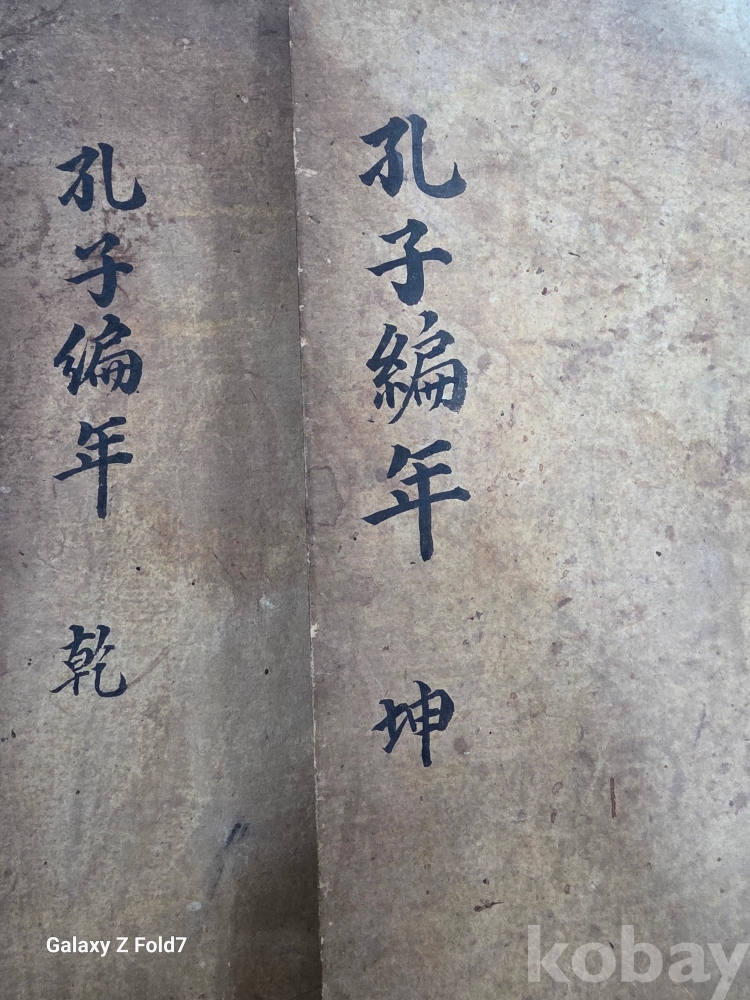 孔子編年 乾
孔子編年 坤
Galaxy Z Fold7
kobay